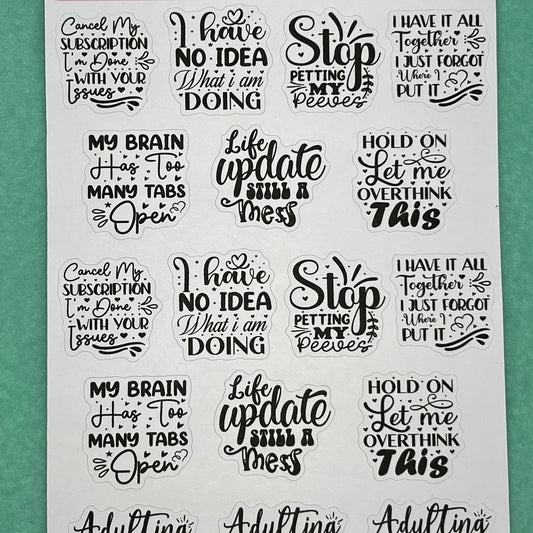 Cancel My
SUBSCRIPTION
I'm Done
WITH YOUR
Issues
I have
NO IDEA
What i am
DOING
Stop
PETTING
MY
Peeves
I HAVE IT ALL
Together
I JUST FORGOT
Where I
PUT IT
MY BRAIN
Has Too
MANY TABS
Open
Life
update
STILL A
mess
HOLD ON
Let me
OVERTHINK
This
Cancel My
SUBSCRIPTION
I'm Done
WITH YOUR
Issues
I have
NO IDEA
What i am
DOING
Stop
PETTING
MY
Peeves
I HAVE IT ALL
Together
I JUST FORGOT
Where I
PUT IT
MY BRAIN
Has Too
MANY TABS
Open
Life
update
STILL A
mess
HOLD ON
Let me
OVERTHINK
This
Adulting
Adulting
Adulting